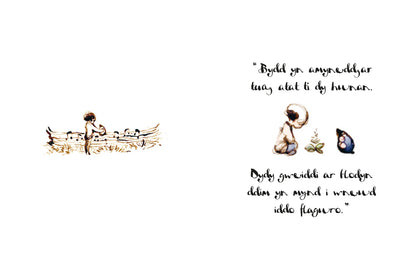 “Bydd yn amyneddgar
tuag atat ti dy hunan.
Dydy gweiddi ar flodyn
ddim yn mynd i wneud
iddo flaguro.”